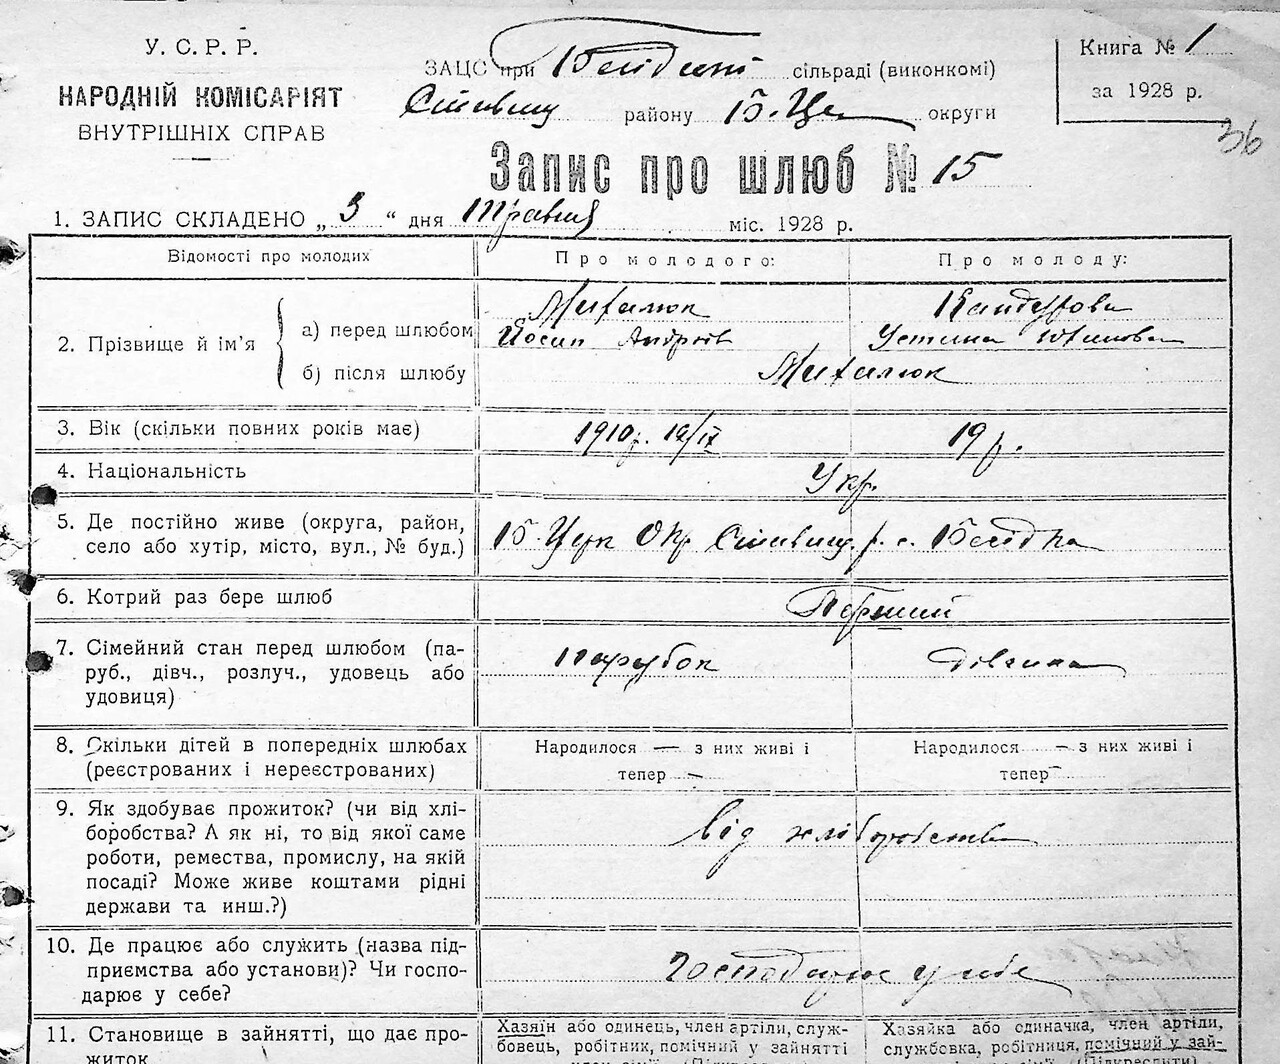 У. С. Р. Р.
НАРОДНІЙ КОМІСАРІЯТ
ВНУТРІШНІХ СПРАВ
ЗАЦС при сільраді (виконкомі)
району Б. Це округи
Книга № 1
за 1928 р.
36
Запис про шлюб № 15
1. ЗАПИС СКЛАДЕНО „ 3 “ дня травня міс. 1928 р.
Відомості про молодих
Про молодого:
Про молоду:
2. Прізвище й ім'я
а) перед шлюбом
Михалюк
Йосип Андріїв
Кандурова
Устина
б) після шлюбу
Михалюк
3. Вік (скільки повних років має)
1910 р. 19/IX
19 р.
4. Національність
Укр.
5. Де постійно живе (округа, район,
село або хутір, місто, вул., № буд.)
Б. Церк Окр р. с.
6. Котрий раз бере шлюб
Перший
7. Сімейний стан перед шлюбом (па-
руб., дівч., розлуч., удовець або
удовиця)
парубок
дівчина
8. Скільки дітей в попередніх шлюбах
(реєстрованих і нереєстрованих)
Народилося — з них живі і
тепер —
Народилося — з них живі і
тепер —
9. Як здобуває прожиток? (чи від хлі-
боробства? А як ні, то від якої саме
роботи, ремества, промислу, на якій
посаді? Може живе коштами рідні
держави та инш.?)
від хліборобства
10. Де працює або служить (назва під-
приємства або установи)? Чи госпо-
дарює у себе?
Господарює у себе
11. Становище в зайнятті, що дає про-
житок
Хазяїн або одинець, член артіли, служ-
бовець, робітник, помічний у зайнятті
Хазяйка або одиначка, член артіли,
службовка, робітниця, помічний у зай-